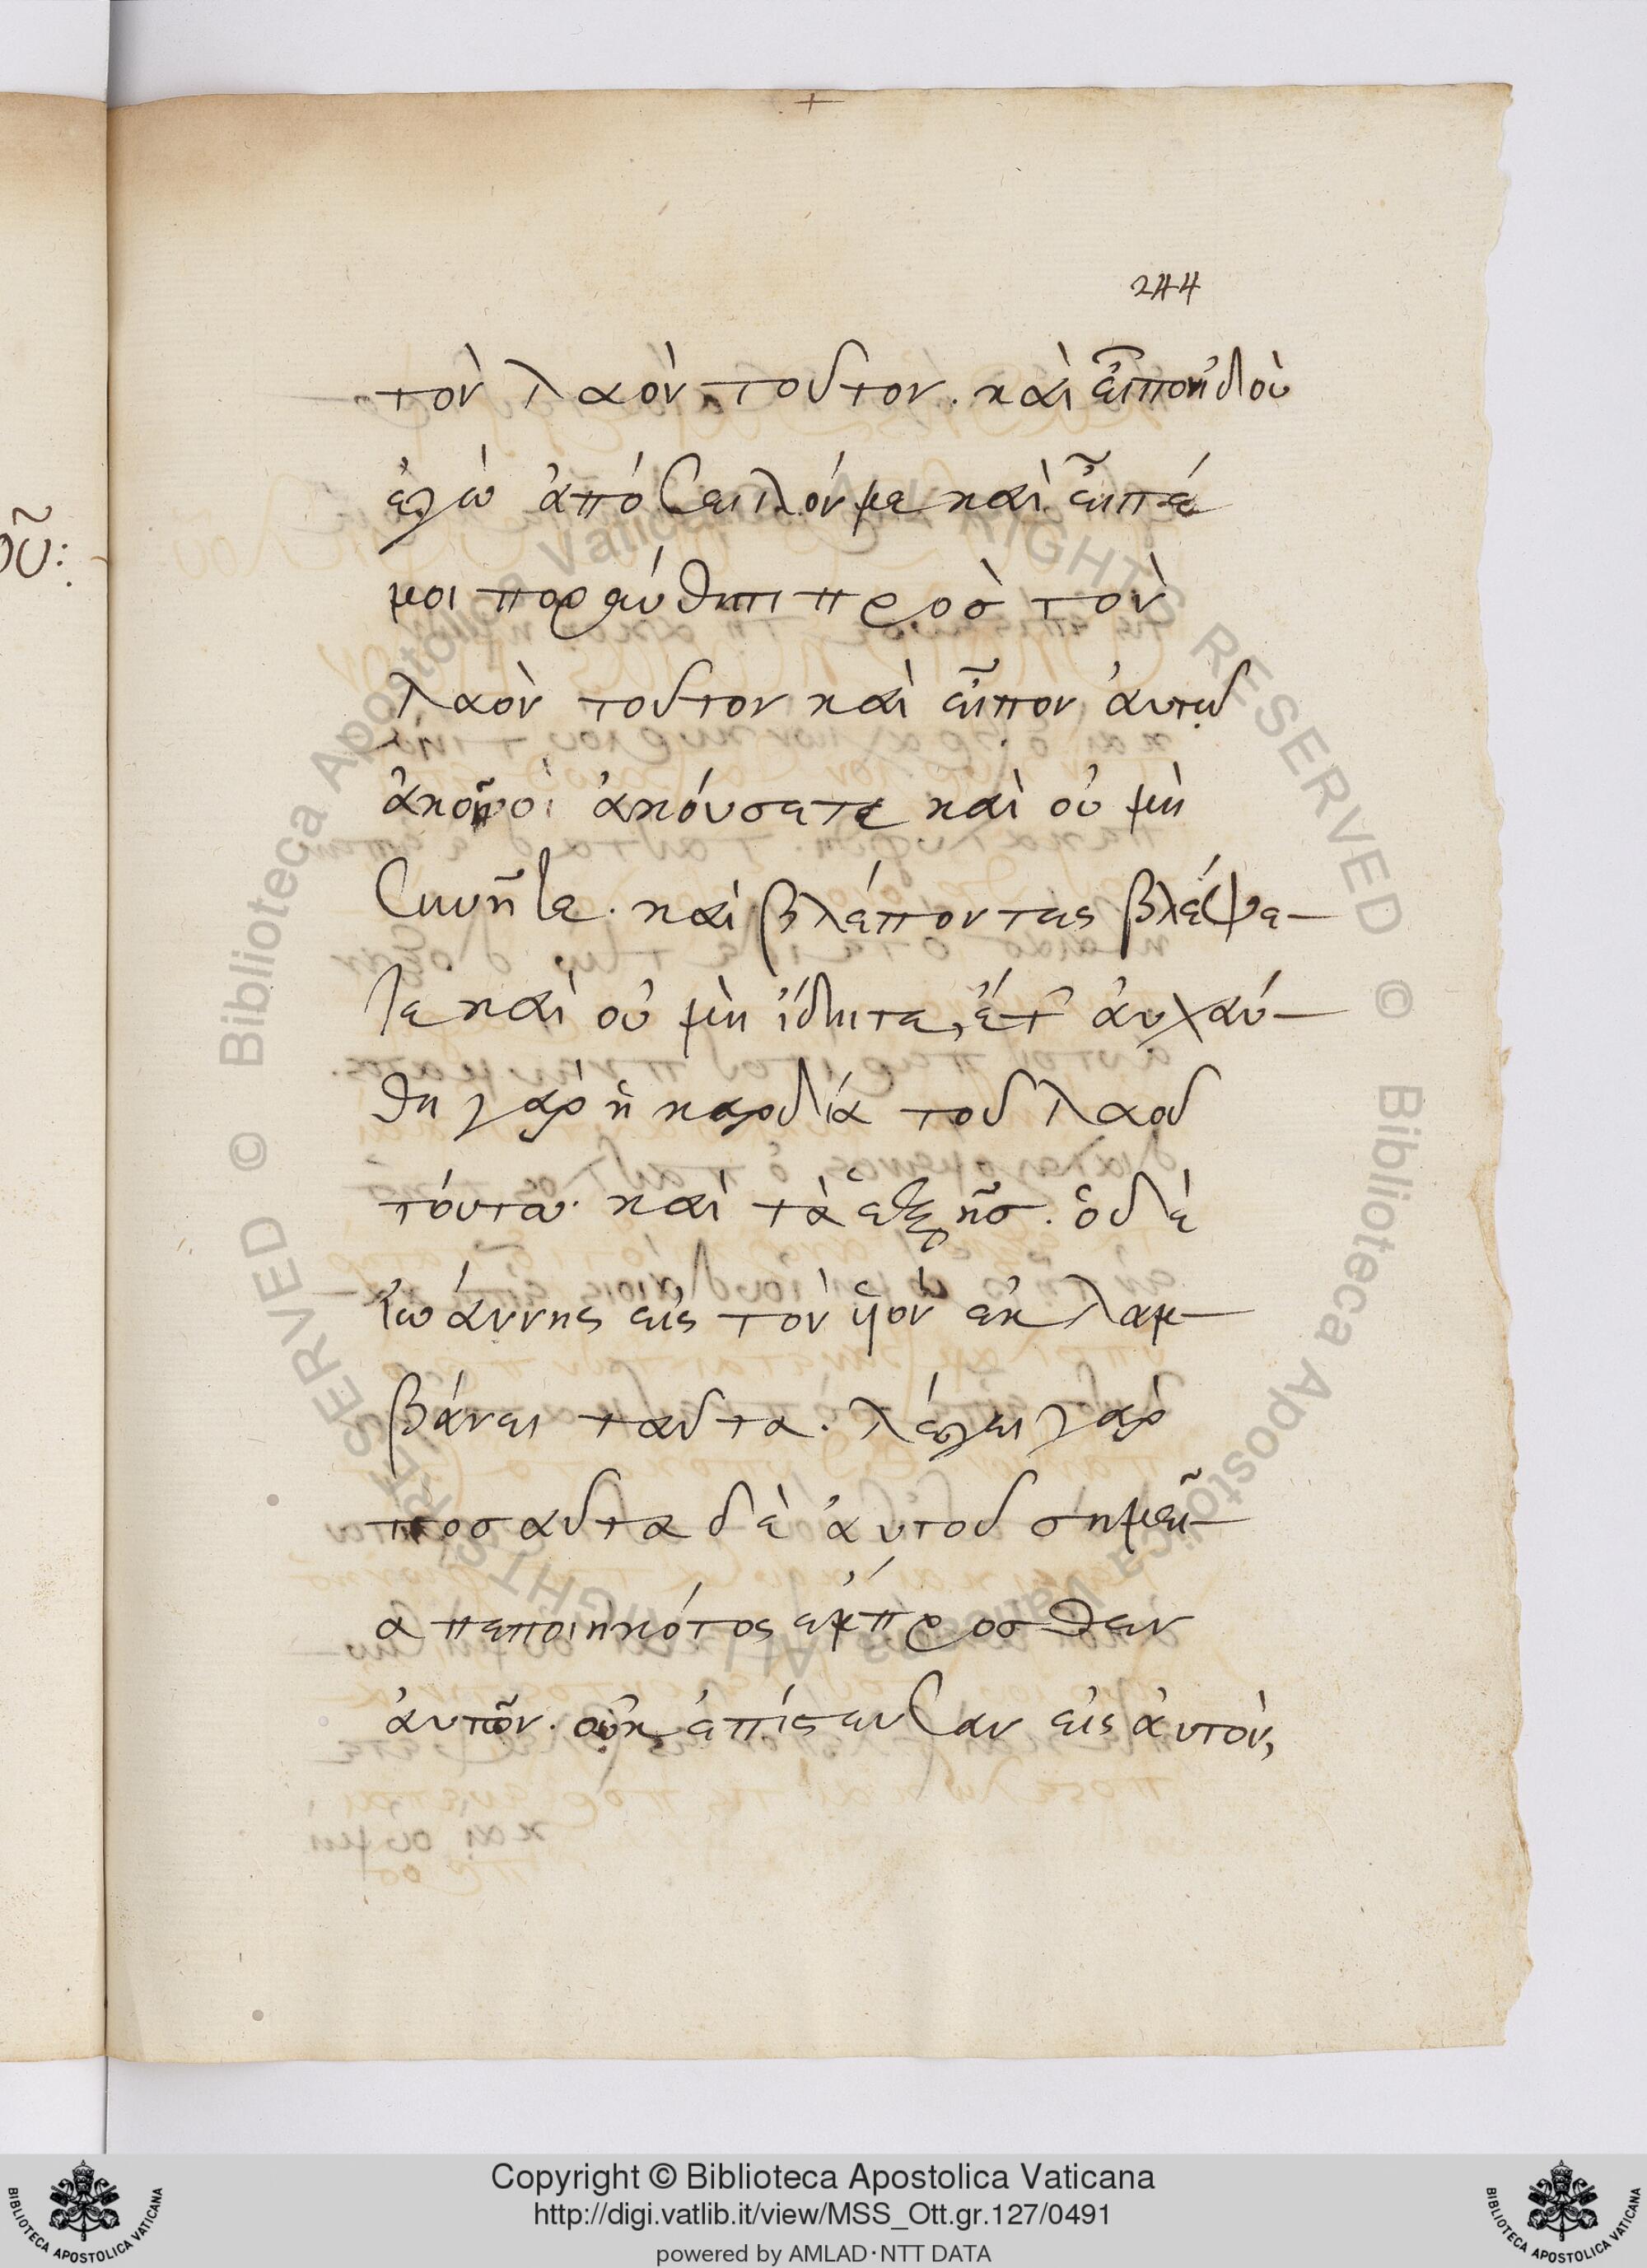 244
τὸν λαὸν τοῦτον. καὶ εἶπον ἰδοὺ
ἐγὼ ἀπόστειλόν με καὶ εἶπέ
μοι πορεύθητι πρὸσ τὸν
λαὸν τοῦτον καὶ εἶπον αὐτῷ
ἀκοῇ ἀκούσατε καὶ οὐ μὴ
συνῆτε. καὶ βλέποντες βλέψε-
τε καὶ οὐ μὴ ἴδητε,
θη γὰρ ἡ καρδία τοῦ λαοῦ
τούτου. καὶ τὰ ἑξῆσ. ὁ δὲ
Ἰωάννης εἰς τὸν ἐκλαμ-
βάνει ταῦτα. λέγει γὰρ
τοσαῦτα δὲ αὐτοῦ σημεῖ-
α πεποιηκότος ἔμπροσθεν
αὐτῶν. οὐκ ἐπίστευσαν εἰς αὐτὸν,
οῦ:
Copyright © Biblioteca Apostolica Vaticana
http://digi.vatlib.it/view/MSS_Ott.gr.127/0491
powered by AMLAD·NTT DATA
BIBLIOTECA APOSTOLICA VATICANA
BIBLIOTECA APOSTOLICA VATICANA
© Biblioteca Apostolica Vaticana ALL RIGHTS RESERVED
© Biblioteca Apostolica Vaticana ALL RIGHTS RESERVED